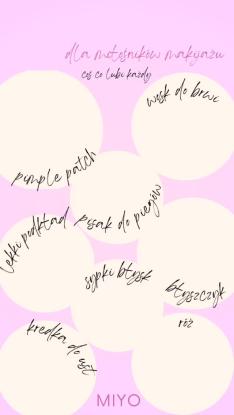 dla miłośników makijażu
coś co lubi każdy
wosk do brwi
pimple patch
pisak do piegów
lekki podkład
sypki błysk
błyszczyk
róż
kredka do ust
MIYO